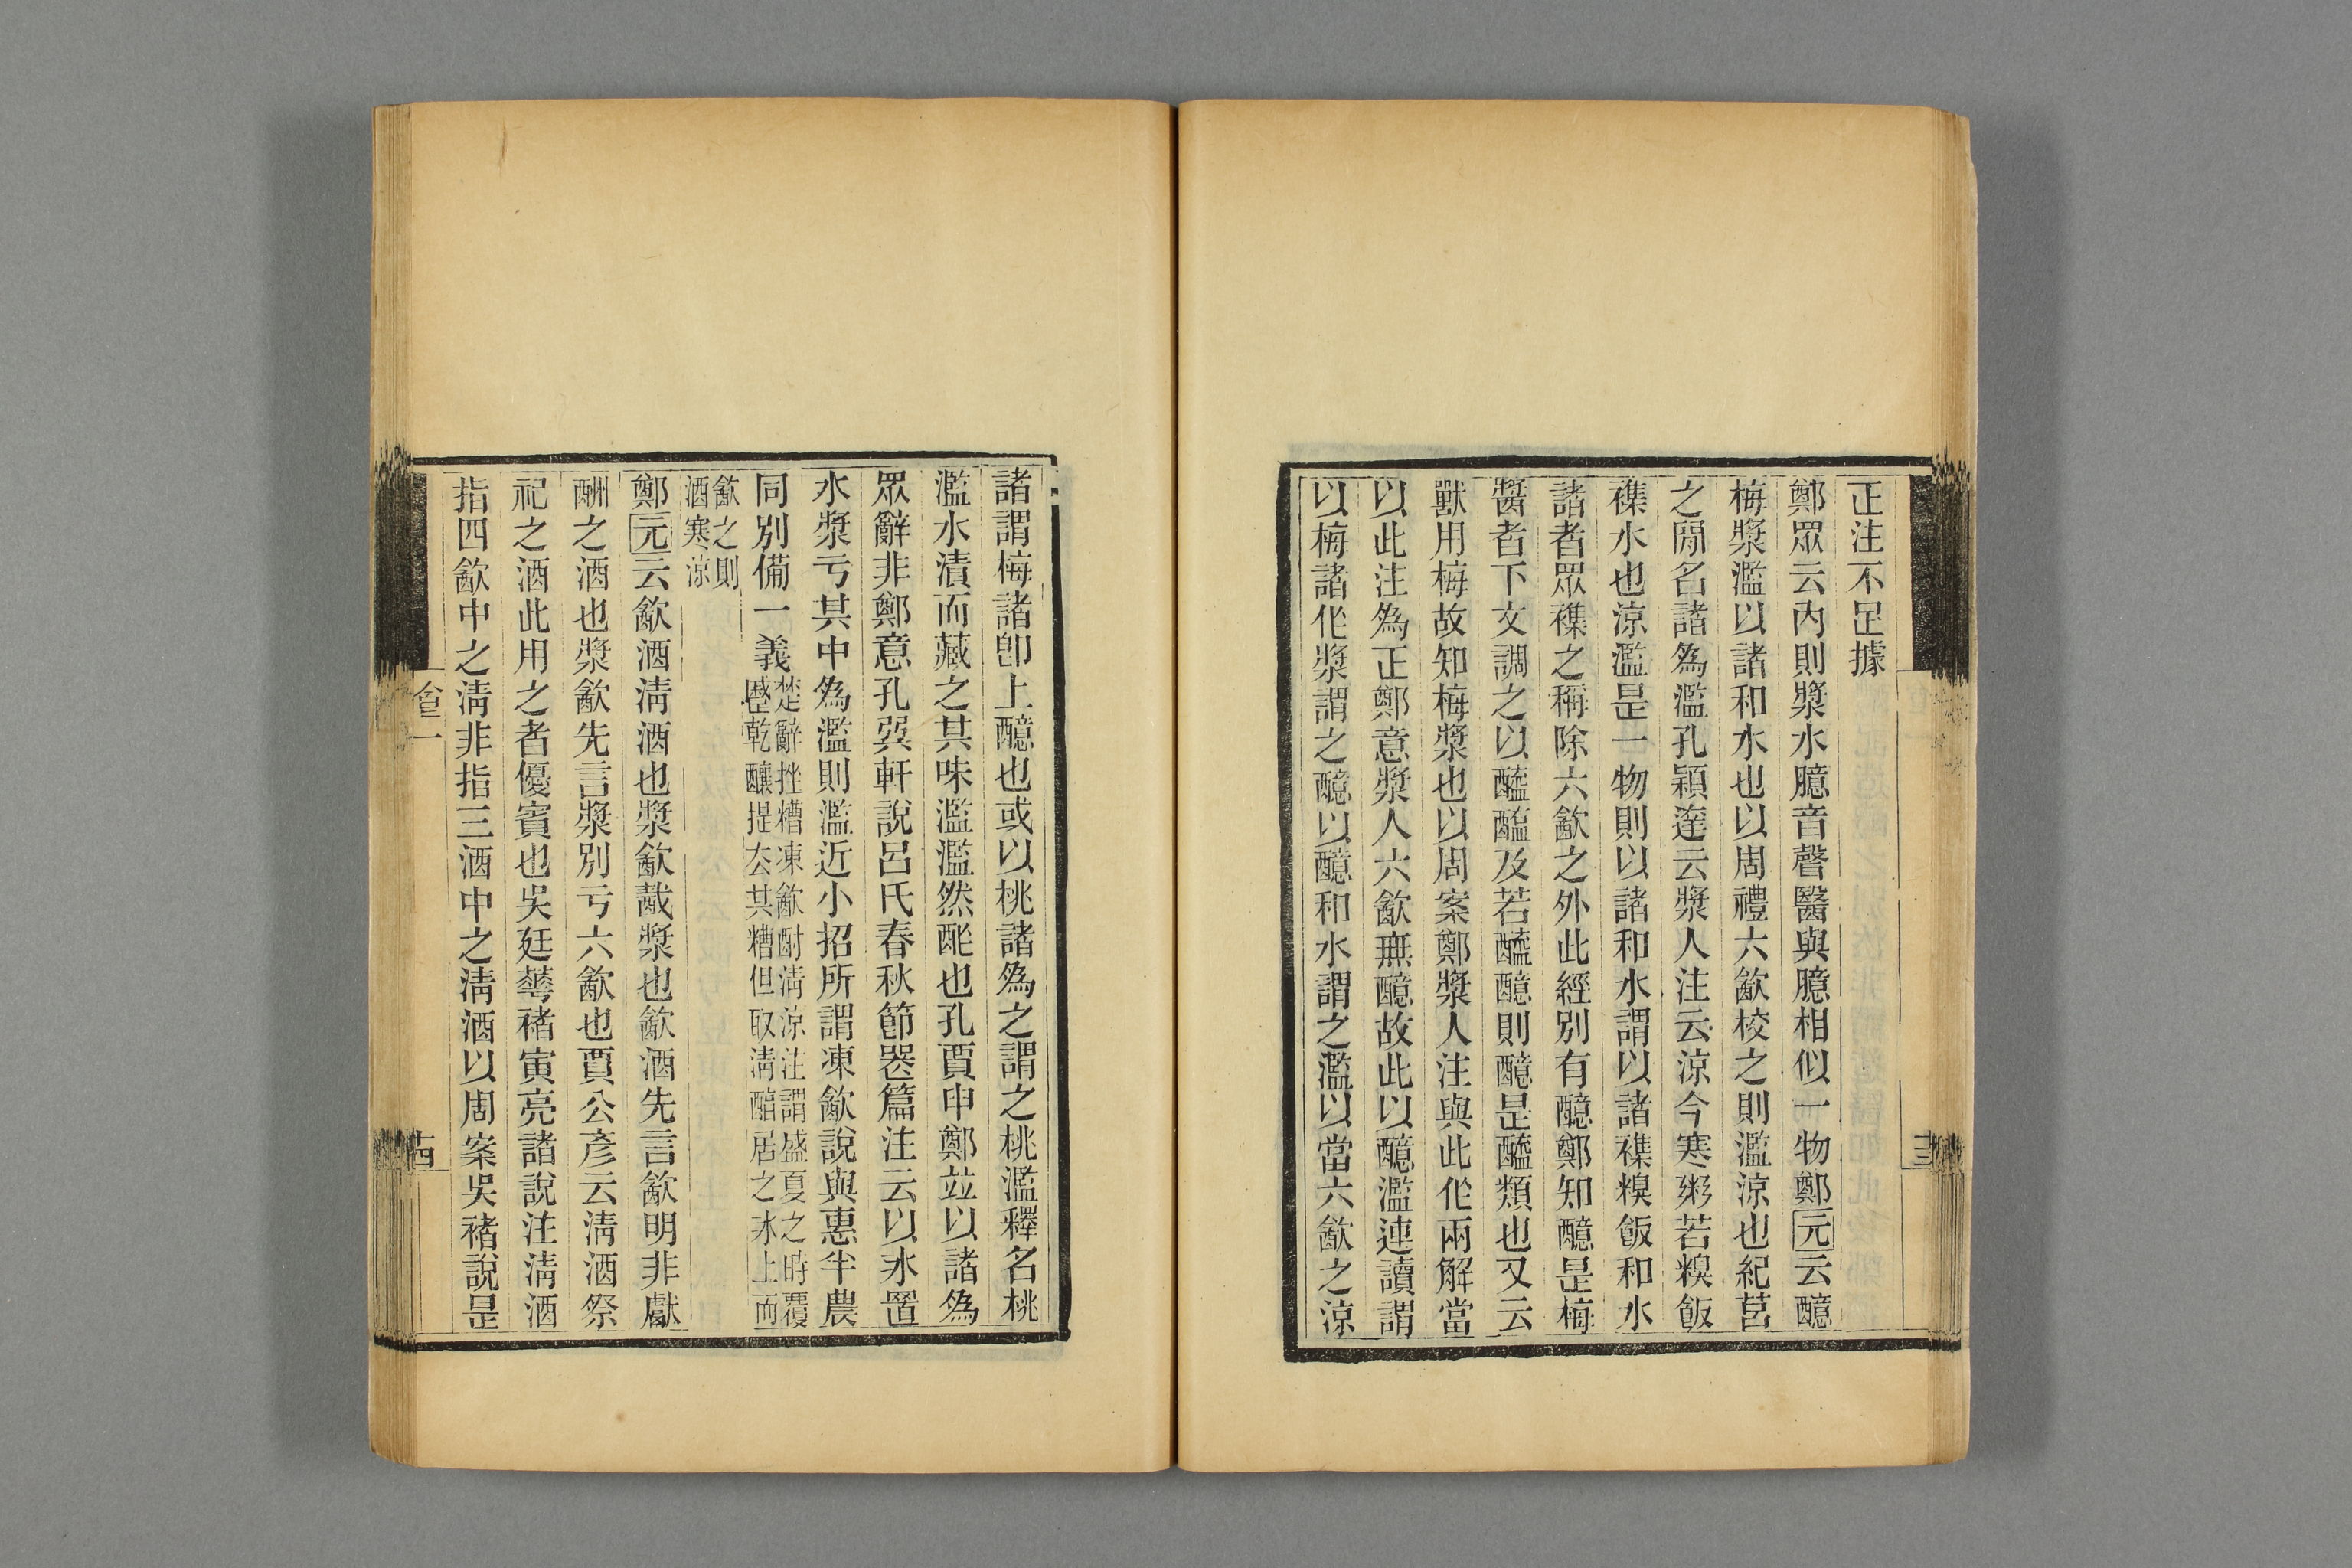 正注不足據
鄭眾云內則漿水臆音聲醫與臆相似一物鄭元云醷
梅漿濫以諸和水也以周禮六㱃校之則濫涼也紀莒
之閒名諸爲濫孔穎達云漿人注云涼今寒粥若糗飯
襍水也涼濫是一物則以諸和水謂以諸襍糗飯和水
諸者眾襍之稱除六㱃之外此經別有醷鄭知醷是梅
醬者下文調之以醯醢及若醯醷則醷是醯類也又云
獸用梅故知梅漿也以周案鄭漿人注與此作兩解當
以此注爲正鄭意漿人六㱃無醷故此以醷濫連讀謂
以梅諸作漿謂之醷以醷和水謂之濫以當六㱃之涼
三
諸謂梅諸卽上醷也或以桃諸爲之謂之桃濫釋名桃
濫水漬而藏之其味濫濫然酢也孔賈申鄭竝以諸爲
眾辭非鄭意孔巽軒說呂氏春秋節喪篇注云以冰置
水漿亏其中爲濫則濫近小招所謂凍㱃說與惠半農
同別備一義
楚辭挫糟凍㱃酎淸涼注謂盛夏之時覆
蹙乾釀提去其糟但取淸醑居之冰上而
㱃之則
酒寒涼
鄭元云㱃酒淸酒也漿㱃胾漿也㱃酒先言㱃明非獻
酬之酒也漿㱃先言漿別亏六㱃也賈公彥云淸酒祭
祀之酒此用之者優賓也吳廷華褚寅亮諸說注淸酒
指四㱃中之淸非指三酒中之淸酒以周案吳褚說是
會一
十四